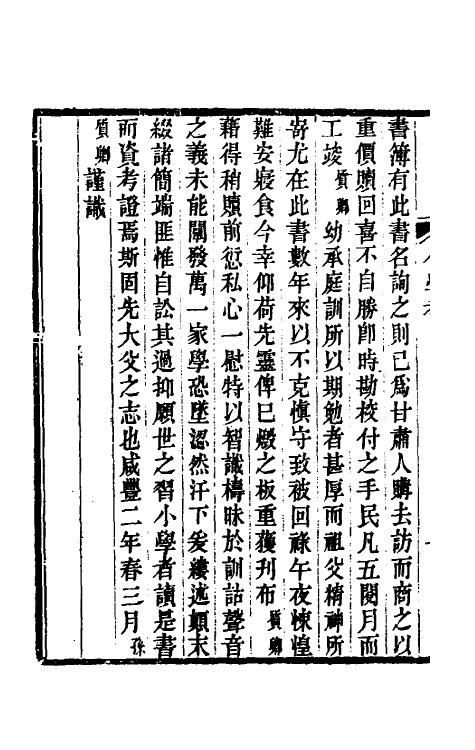 書簿有此書名詢之則已爲甘肅人購去訪而商之以
重價贖回喜不自勝卽時勘校付之手民凡五閱月而
工竣質卿幼承庭訓所以期勉者甚厚而祖父精神所
寄尤在此書數年來以不克愼守致被回祿午夜悚惶
難安寢食今幸仰荷先靈俾已燬之板重獲刋布質卿
藉得稍贖前愆私心一慰特以智識檮昧於訓詁聲音
之義未能闡發萬一家學恐墜㴰然汗下爰縷述顚末
綴諸簡端匪惟自訟其過抑願世之習小學者讀是書
而資考證焉斯固先大父之志也咸豐二年春三月孫
質卿謹識